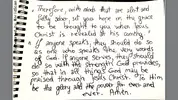 • Therefore, with minds that are alert and
fully sober, set your hope on the grace
to be brought to you when Jesus
Christ is revealed at his coming.
• If anyone speaks, they should do so
as one who speaks the very words
of God. If anyone serves, they should
do so with the strength God provides,
so that in all things God may be
praised through Jesus Christ. To him
be the glory and the power for ever and
ever. Amen.